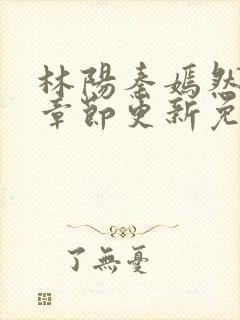 林陽秦嫣然
章節更新免
了無憂